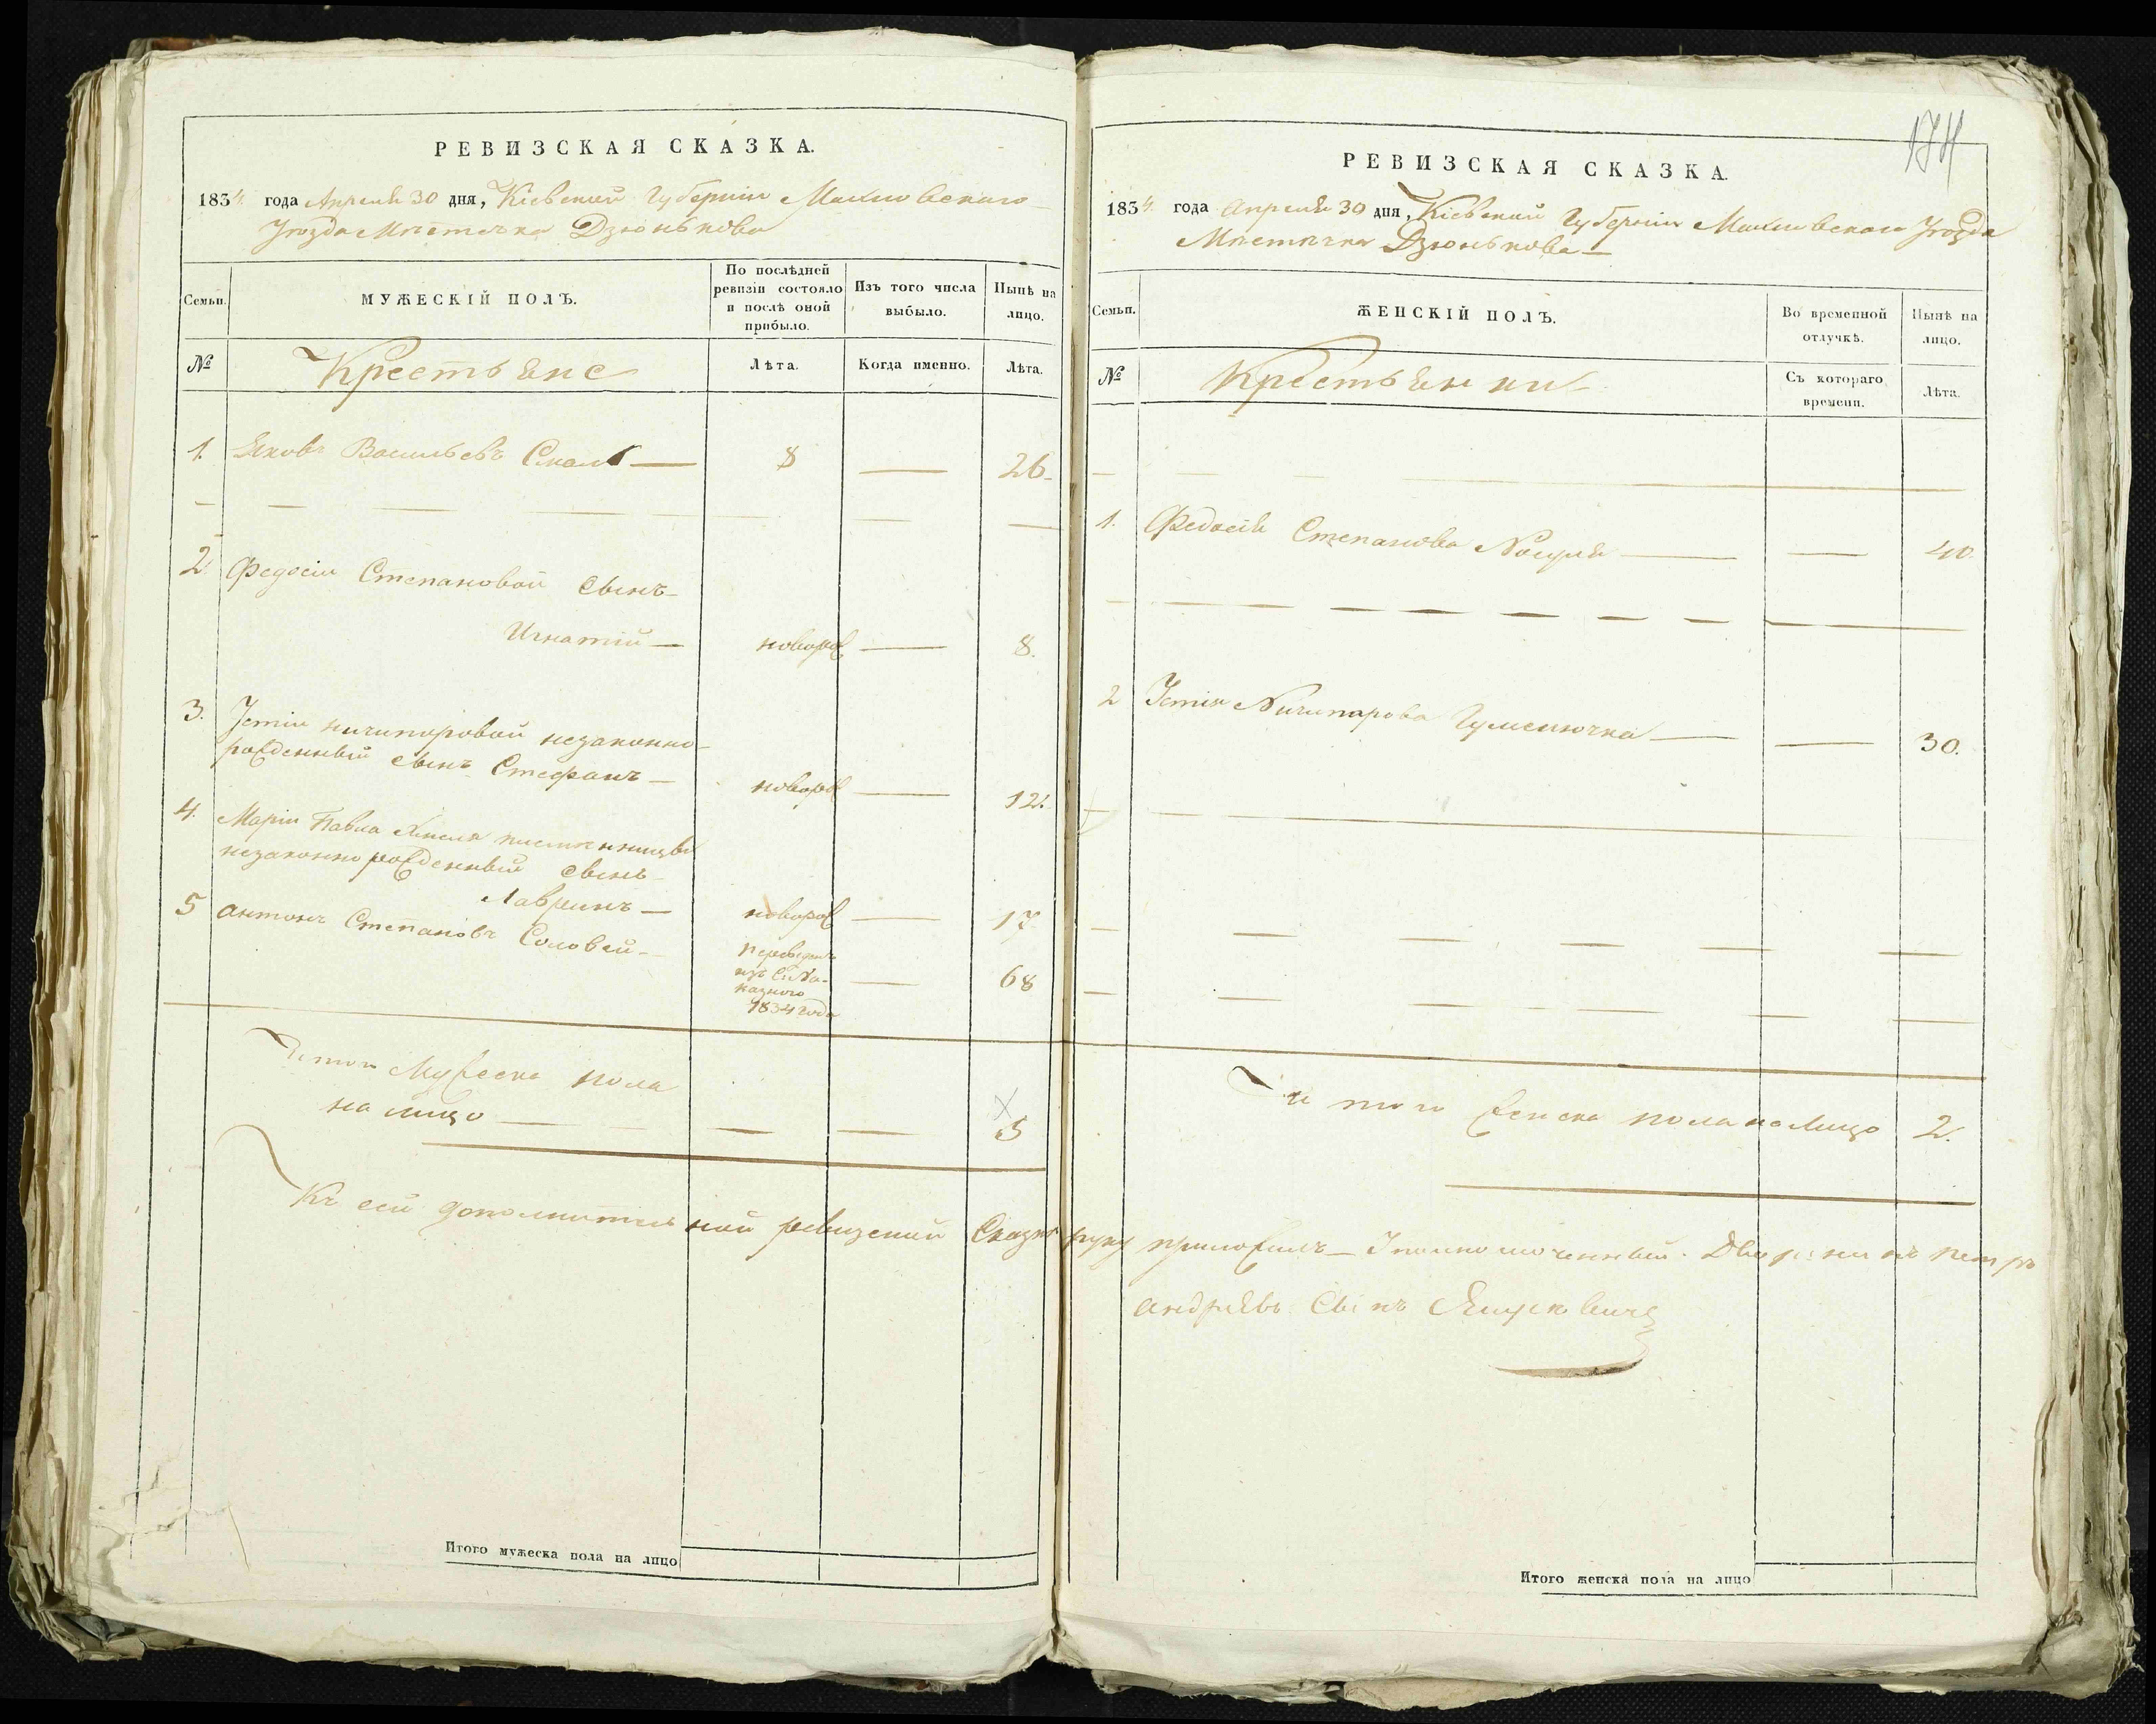 РЕВИЗСКАЯ СКАЗКА.
1834 года Апреля 30 дня, Кіевской Губерніи Махновскаго
Уезда Местечка Дзюнькова
Семьи.
МУЖЕСКІЙ ПОЛЪ.
По послѣдней ревизіи состояло и послѣ оной прибыло.
Изъ того числа выбыло.
Нынѣ на лицо.
№
Крестьяне
Лѣта.
Когда именно.
Лѣта.
1. Яковъ Васильевъ 8 — 26
2. Федосіи Степановой сынъ
Игнатій — новорож — 8.
3. Устіи ничипоровой незаконно-
рожденный сынъ Стефанъ — новорож — 12.
4. Маріи Павла
незаконно рожденный сынъ
Лавринъ — новорож — 17
5 Антонъ Степановъ Соловей — переведенъ — 68
1834 года
Итого Мужеска пола
на лицо — 5
Къ сей дополнительной ревизской Сказке руку приложилъ — Уполномоченный Дворянинъ Петръ
Андреевъ Сынъ
Итого мужеска пола на лицо
174
РЕВИЗСКАЯ СКАЗКА.
1834 года Апреля 30 дня, Кіевской Губерніи Махновскаго Уезда
Местечка Дзюнькова —
Семьи.
ЖЕНСКІЙ ПОЛЪ.
Во временной отлучкѣ.
Нынѣ на лицо.
№
Крестьянки
Съ котораго времени.
Лѣта.
1. Федосія Степанова — 40.
2 Устія Ничипорова Гуменючка — 30.
Итого женска пола на лицо 2.
Итого женска пола на лицо